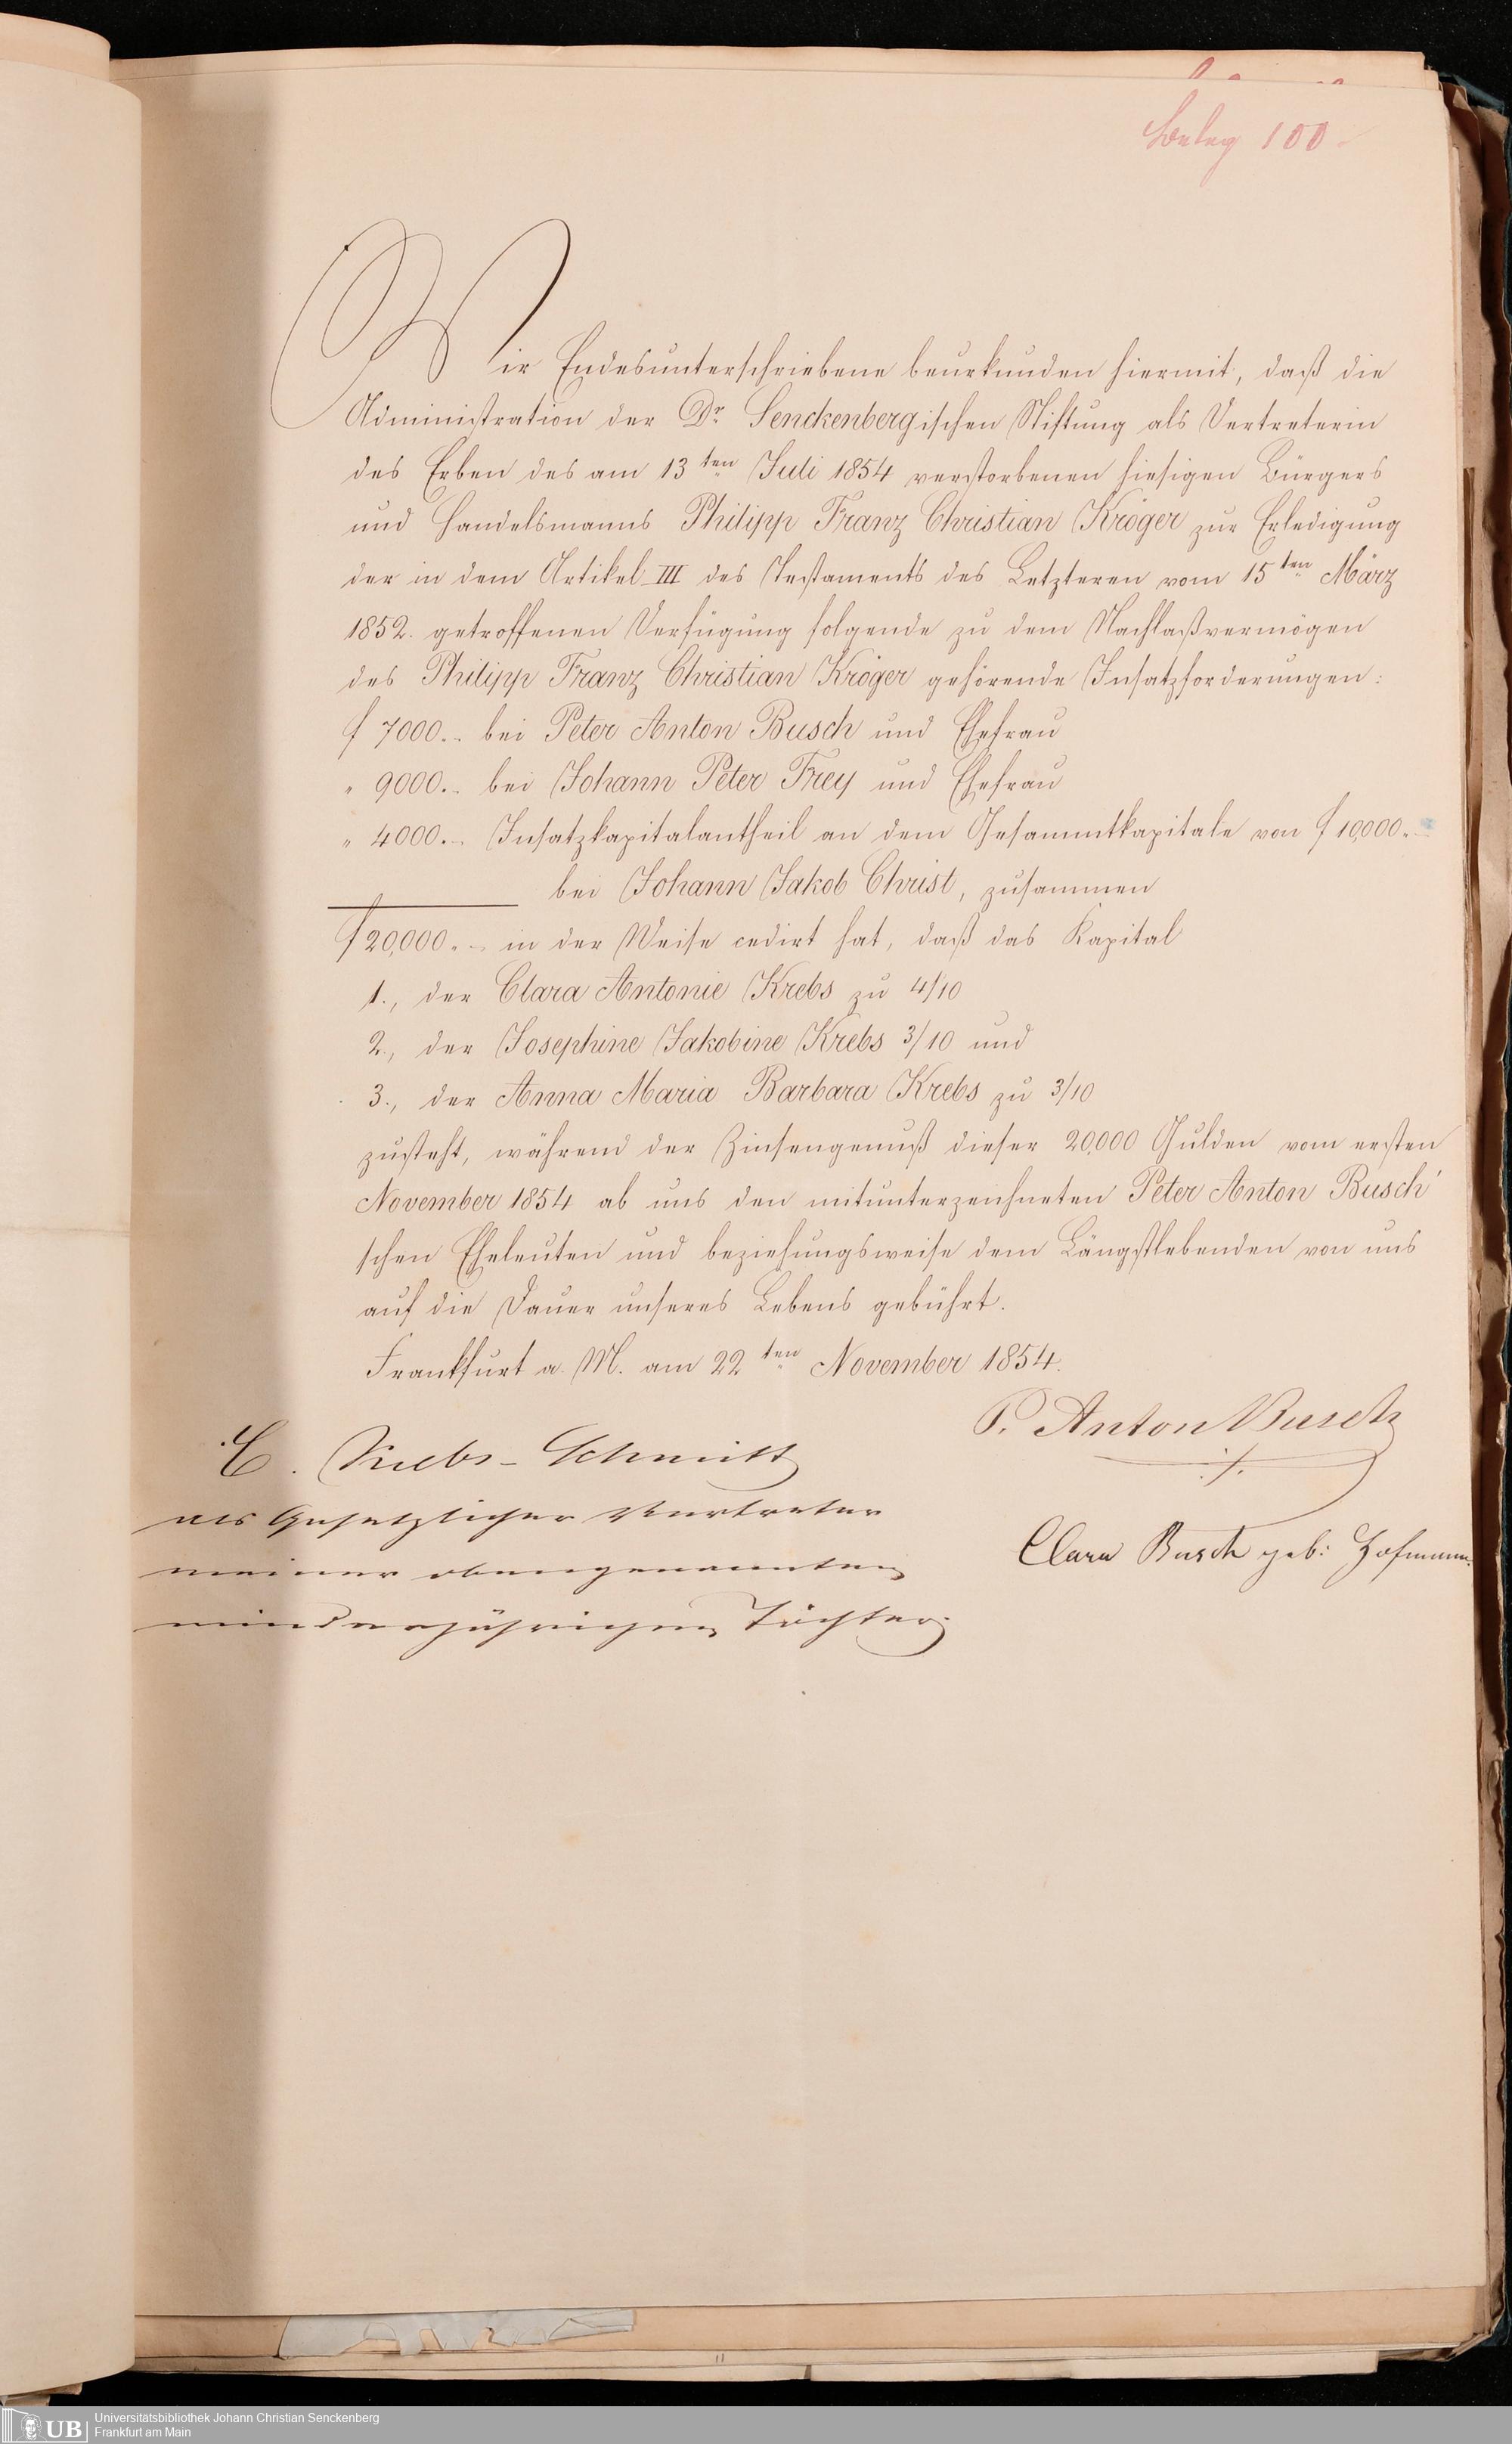 Beleg 100
Wir Endesunterschriebene beurkunden hiermit, daß die
Administration der Dr. Senckenbergischen Stiftung als Vertreterin
des Erben des am 13ten Juli 1854 verstorbenen hiesigen Bürgers
und Handelsmanns Philipp Franz Christian Kröger zur Erledigung
der in dem Artikel III des Testaments des Letzteren vom 15ten März
1852. getroffenen Verfügung folgende zu dem Nachlaßvermögen
des Philipp Franz Christian Kröger gehörende Insatzforderungen:
f 7000.- bei Peter Anton Busch und Ehefrau
" 9000.- bei Johann Peter Frey und Ehefrau
" 4000.- Insatzkapitalantheil an dem Gesammtkapitale von f 10,000.-
bei Johann Jakob Christ, zusammen
f 20,000.- in der Weise cedirt hat, daß das Kapital
1., der Clara Antonie Krebs zu 4/10
2., der Josephine Jakobine Krebs 3/10 und
3., der Anna Maria Barbara Krebs zu 3/10
zusteht, während der Zinsengenuß dieser 20,000 Gulden vom ersten
November 1854 ab uns den mitunterzeichneten Peter Anton Busch'
schen Eheleuten und beziehungsweise dem Längstlebenden von uns
auf die Dauer unseres Lebens gebührt.
Frankfurt a. M. am 22ten November 1854.
P. Anton Busch
C. Krebs-Schmitt
als Gesetzlicher Vertreter
meiner obengenannten
minderjährigen Töchter.
Clara Busch geb: Hofmann.
UB
Universitätsbibliothek Johann Christian Senckenberg
Frankfurt am Main